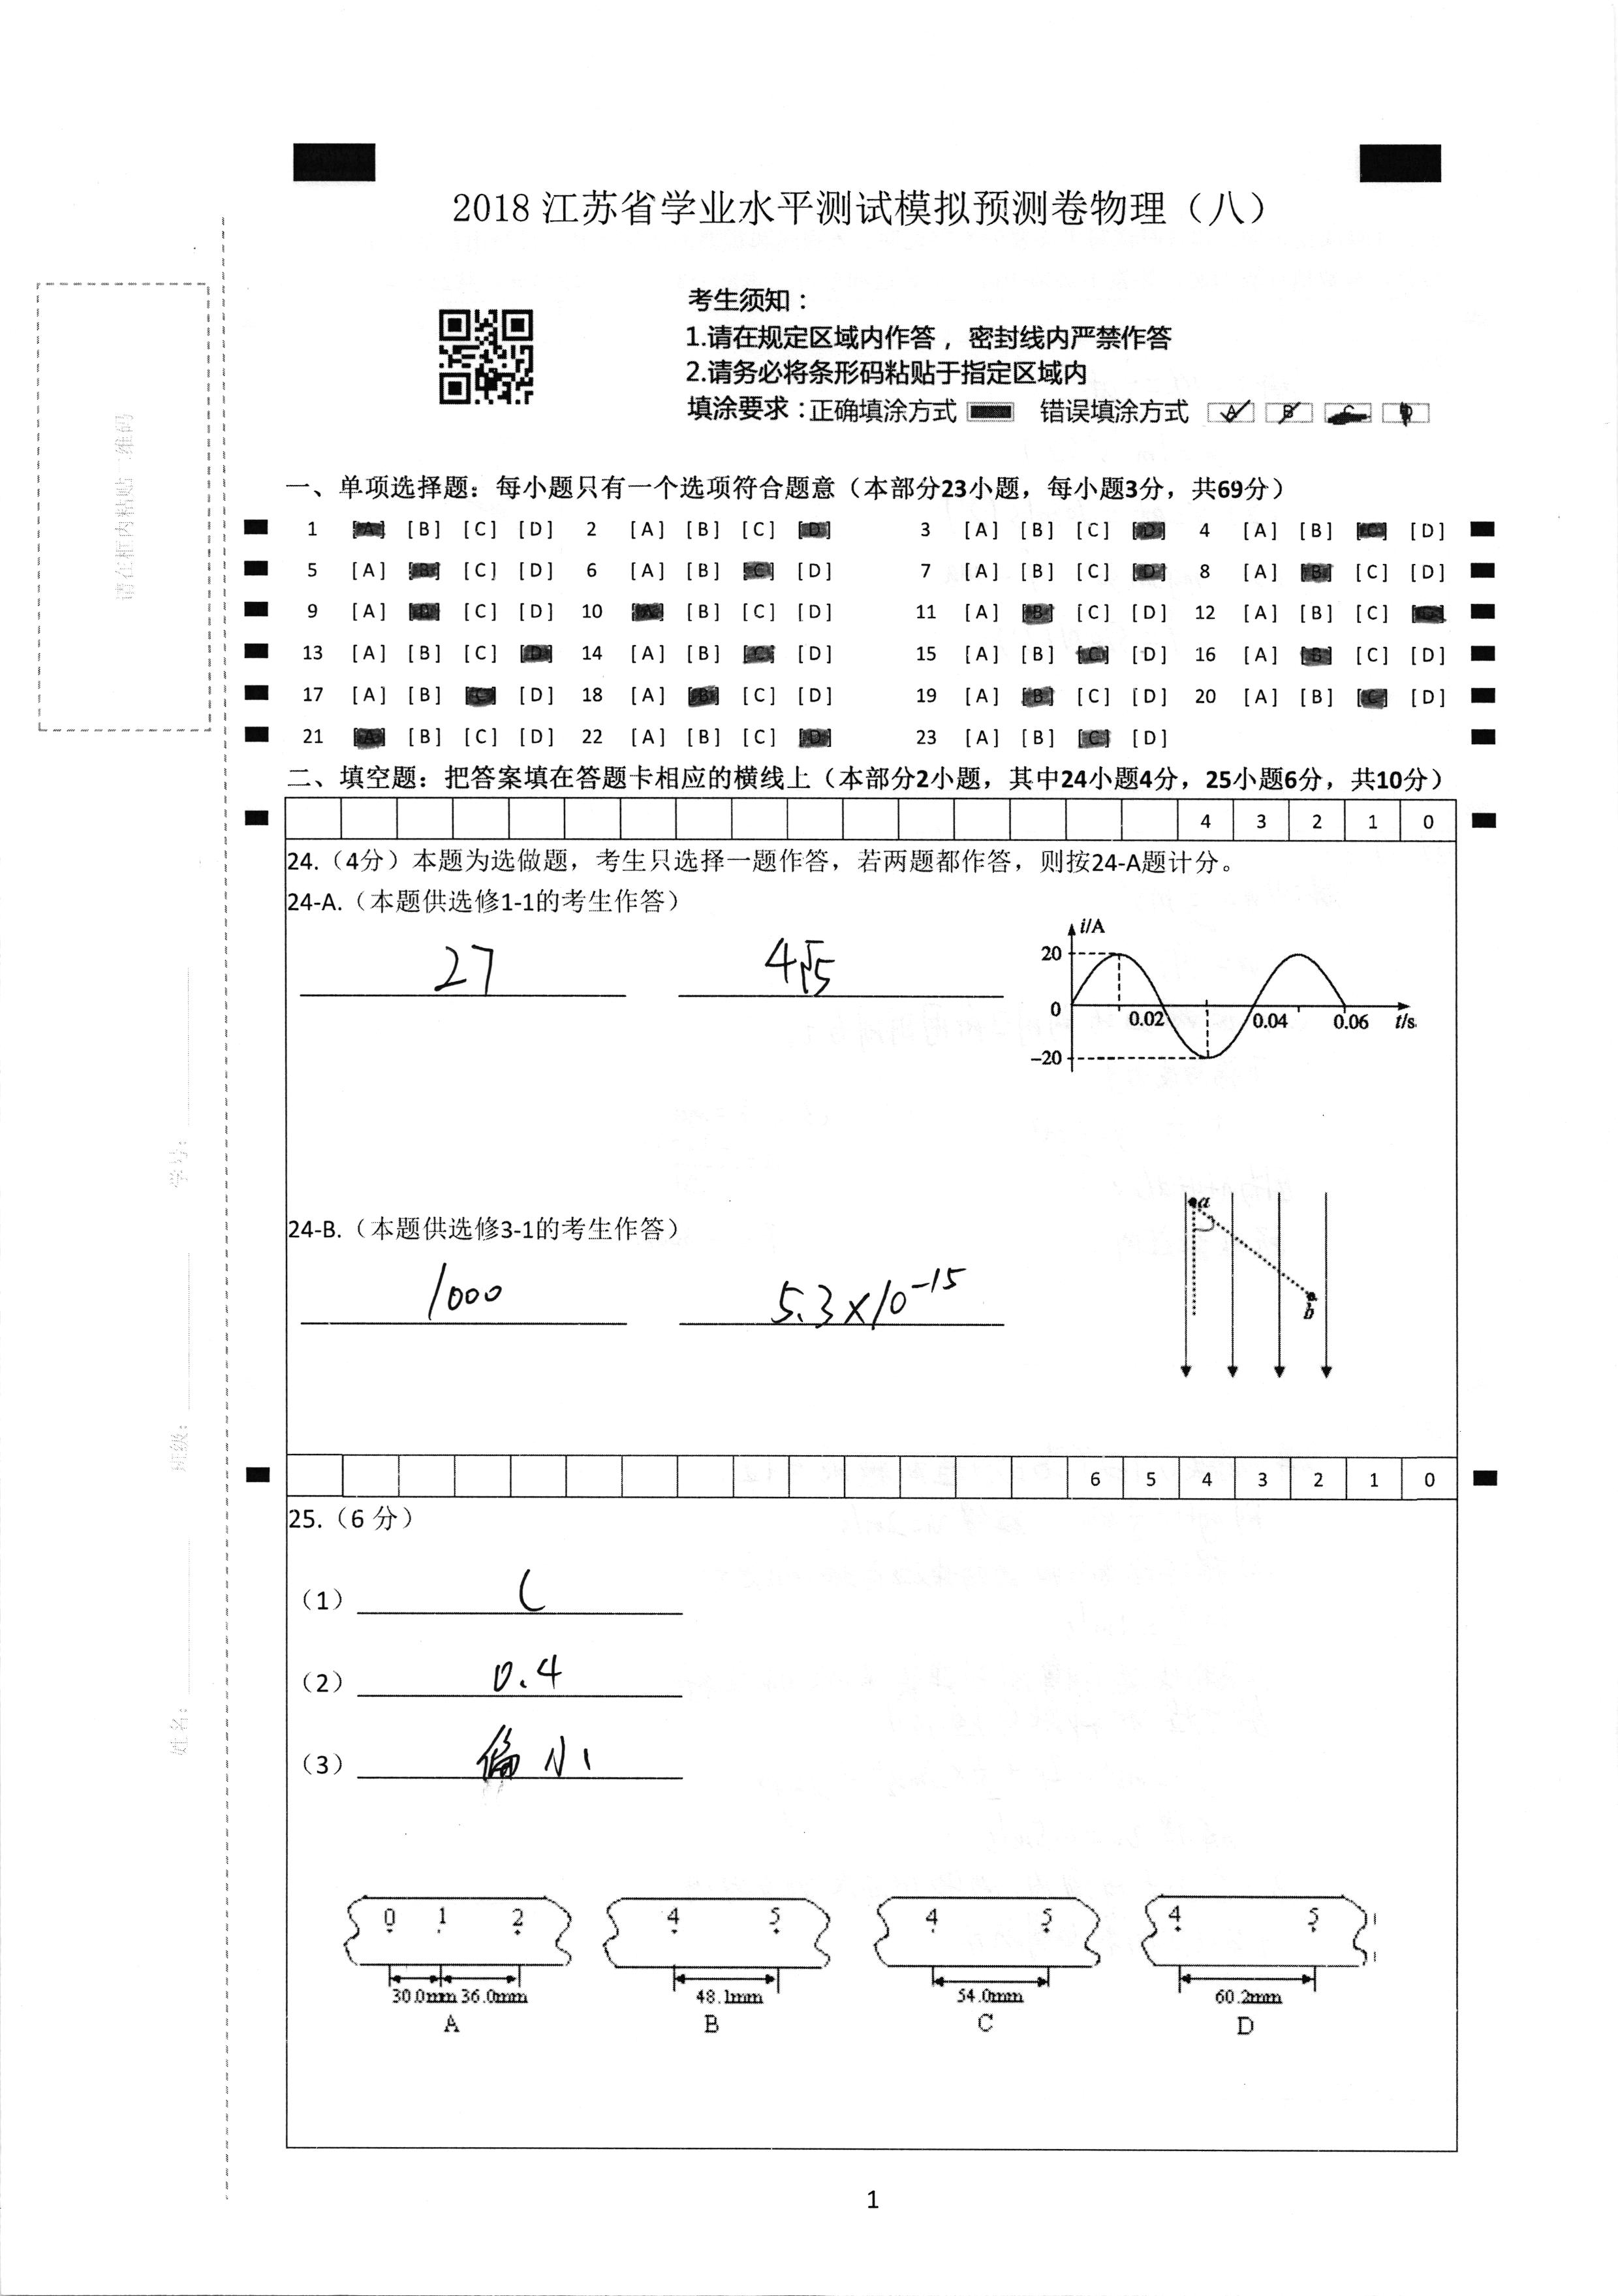 2018 江苏省学业水平测试模拟预测卷物理（八）
考生须知：
1.请在规定区域内作答，密封线内严禁作答
2.请务必将条形码粘贴于指定区域内
填涂要求：正确填涂方式 错误填涂方式 A B C D
请在框内粘贴二维码
学号：
班级：
姓名：
一、单项选择题：每小题只有一个选项符合题意（本部分23小题，每小题3分，共69分）
1 [A] [B] [C] [D] 2 [A] [B] [C] [D] 3 [A] [B] [C] [D] 4 [A] [B] [C] [D]
5 [A] [B] [C] [D] 6 [A] [B] [C] [D] 7 [A] [B] [C] [D] 8 [A] [B] [C] [D]
9 [A] [B] [C] [D] 10 [A] [B] [C] [D] 11 [A] [B] [C] [D] 12 [A] [B] [C] [D]
13 [A] [B] [C] [D] 14 [A] [B] [C] [D] 15 [A] [B] [C] [D] 16 [A] [B] [C] [D]
17 [A] [B] [C] [D] 18 [A] [B] [C] [D] 19 [A] [B] [C] [D] 20 [A] [B] [C] [D]
21 [A] [B] [C] [D] 22 [A] [B] [C] [D] 23 [A] [B] [C] [D]
二、填空题：把答案填在答题卡相应的横线上（本部分2小题，其中24小题4分，25小题6分，共10分）
4 3 2 1 0
24.（4分）本题为选做题，考生只选择一题作答，若两题都作答，则按24-A题计分。
24-A.（本题供选修1-1的考生作答）
27 4√5
i/A
20
0 0.02 0.04 0.06 t/s
-20
24-B.（本题供选修3-1的考生作答）
1000 5.3×10⁻¹⁵
a
b
6 5 4 3 2 1 0
25.（6 分）
（1） C
（2） 0.4
（3） 偏小
0 1 2 4 5 4 5 4 5
30.0mm 36.0mm 48.1mm 54.0mm 60.2mm
A B C D
1